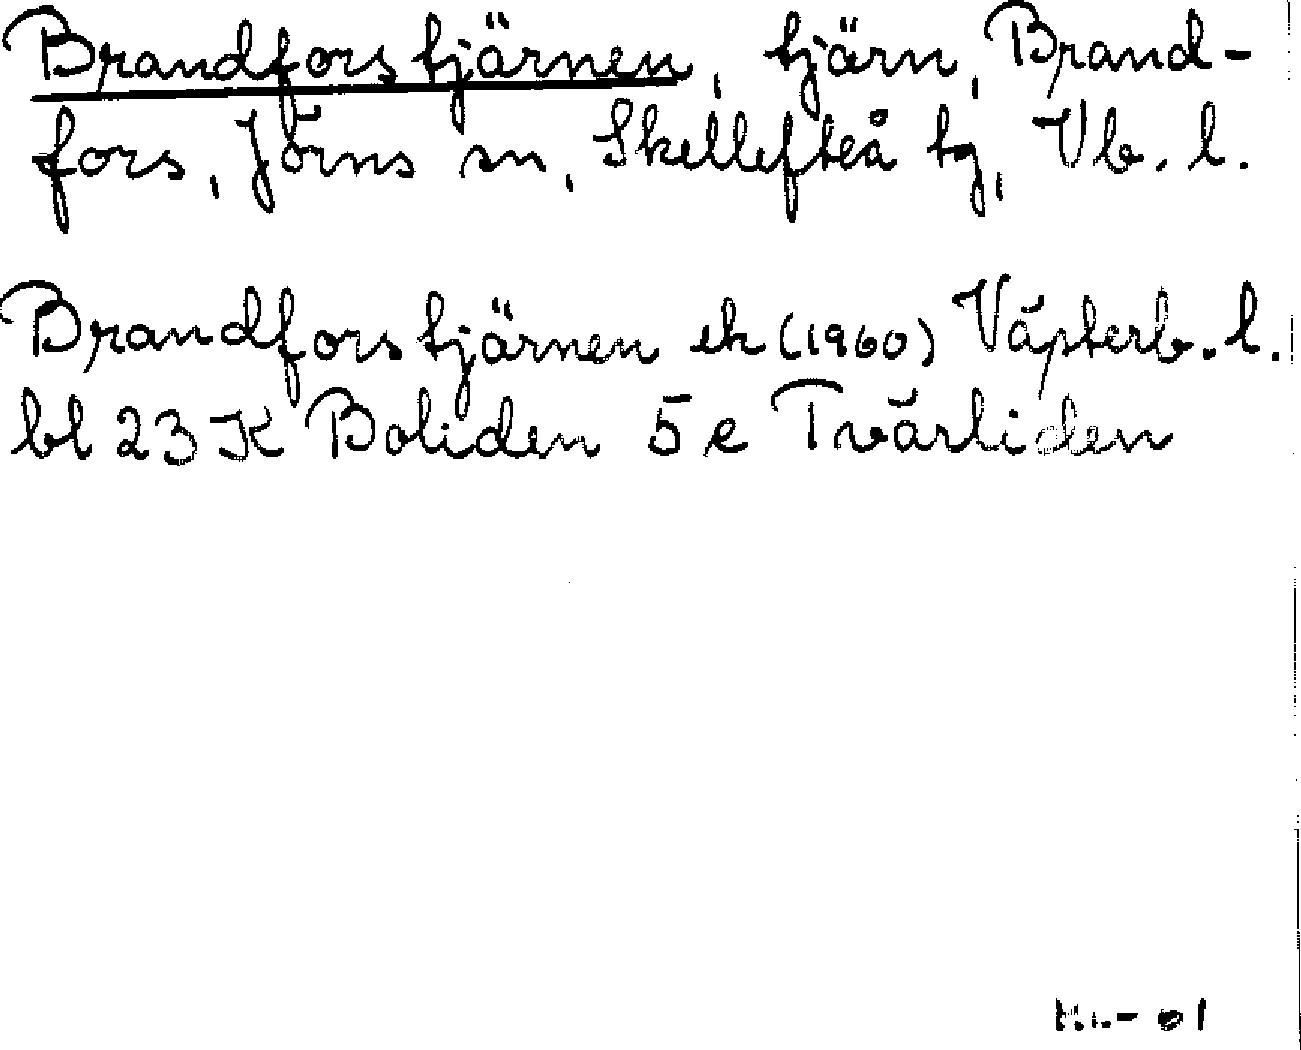 Brandforstjärnen, tjärn, Brand-
fors, Jörns sn, Skellefteå tg, Vb. l.
Brandforstjärnen ek (1960) Västerb. l.
bl 23 K Boliden 5 e Tvärliden